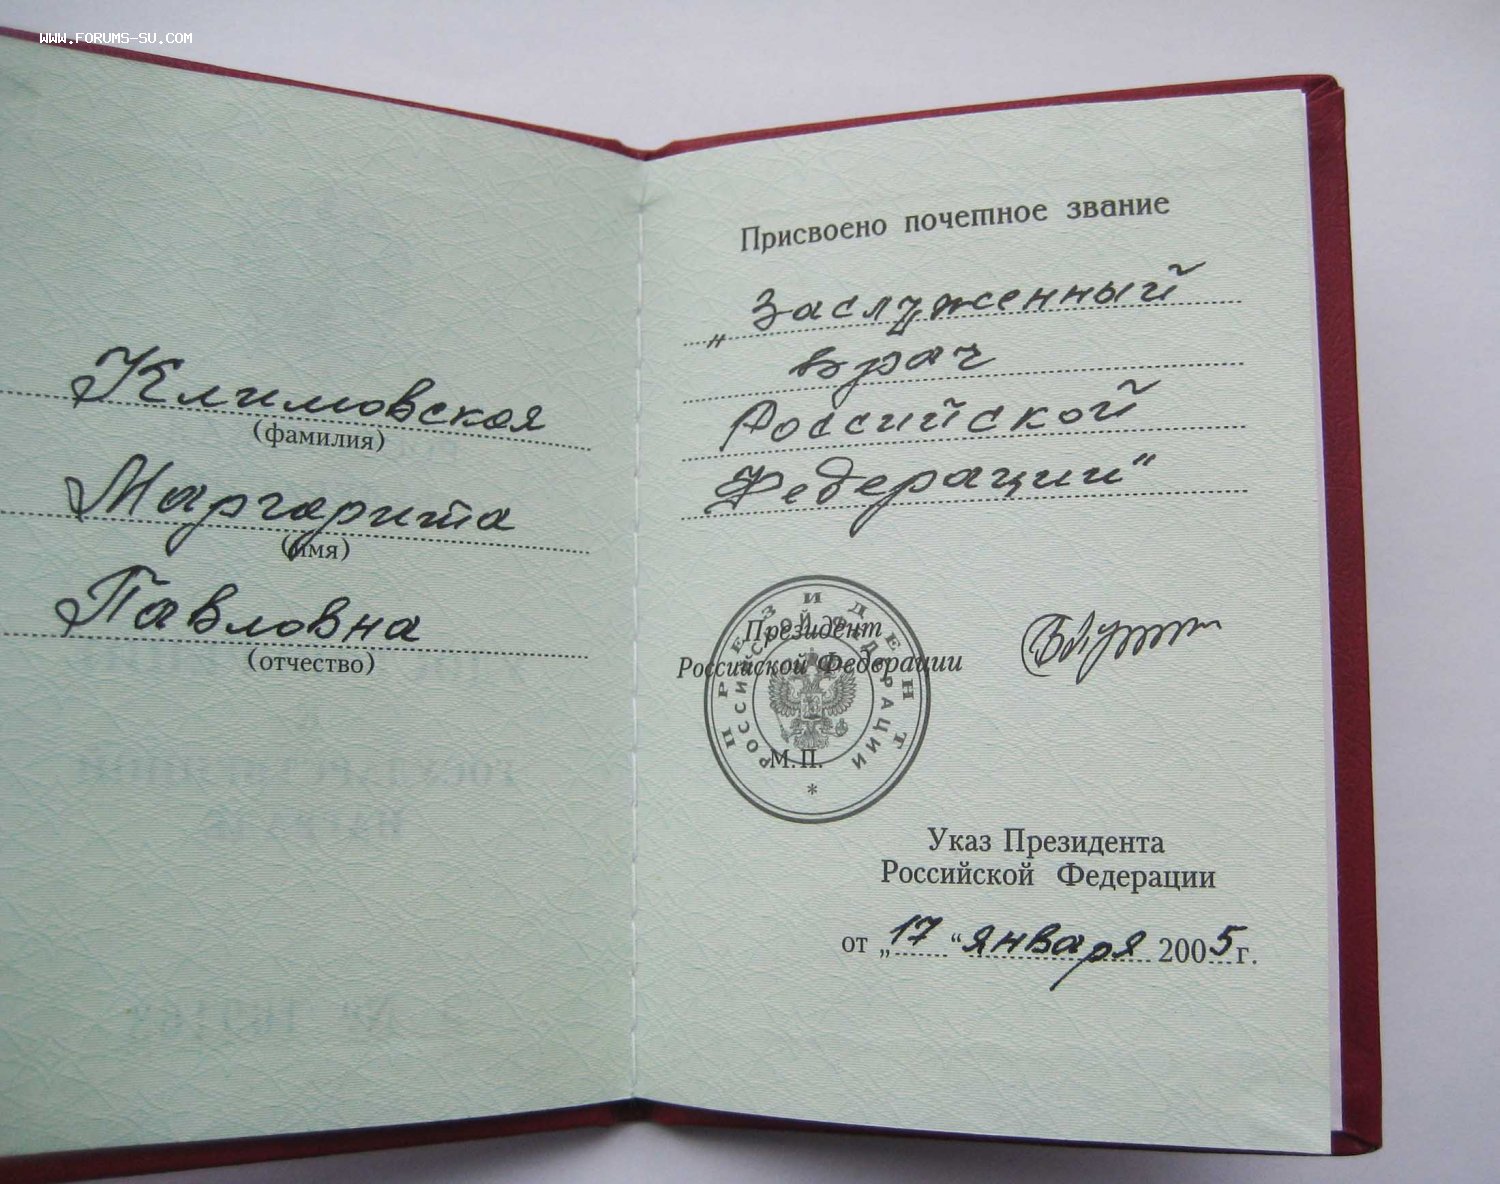 WWW.FORUMS-SU.COM
Климовская
(фамилия)
Маргарита
(имя)
Павловна
(отчество)
Присвоено почетное звание
„Заслуженный
врач
Российской
Федерации“
Президент
Российской Федерации
ПРЕЗИДЕНТ
РОССИЙСКОЙ ФЕДЕРАЦИИ
*
М.П.
Указ Президента
Российской Федерации
от „17“ января 2005г.